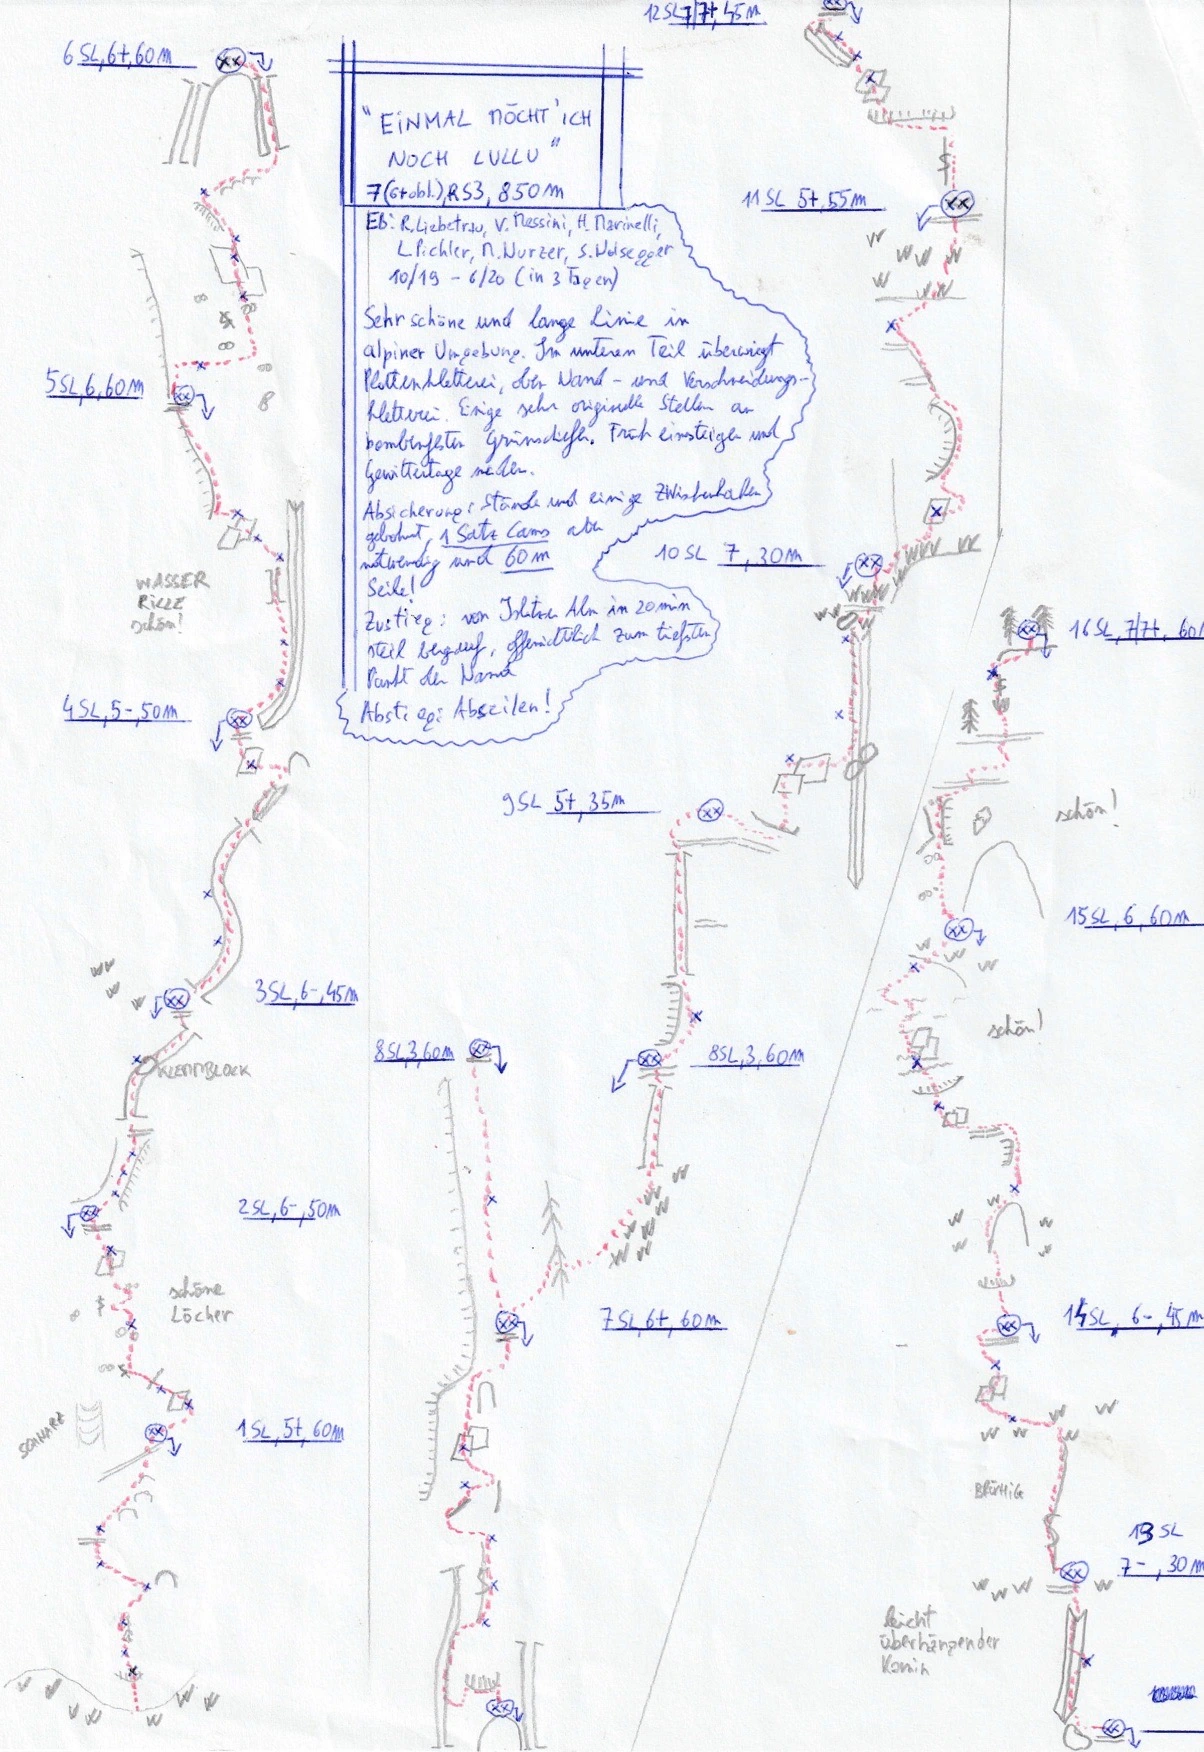 6 SL, 6+, 60m
5SL, 6, 60m
WASSER
RILLE
schön!
4SL, 5-, 50m
3SL, 6-, 45m
KLEMMBLOCK
2SL, 6-, 50m
schöne
Löcher
SCHWARZ
1SL, 5+, 60m
"EINMAL MÖCHT' ICH
NOCH LULLU"
7 (6+ obl.), RS3, 850m
EB: R. Liebetrau, V. Messini, H. Marinelli,
L. Pichler, M. Wurzer, S.
10/19 - 6/20 (in 3 Tagen)
Sehr schöne und lange Linie in
alpiner Umgebung. Im unteren Teil überwiegt
Plattenkletterei, oben Wand- und Verschneidungs-
kletterei. Einige sehr originelle Stellen an
bombenfesten Grünschiefer. Früh einsteigen und
Gewittertage meiden.
Absicherung: Stände und einige Zwischenhaken
gebohrt, 1 Satz Cams aber
notwendig und 60m
Seile!
Zustieg: von Islitzer Alm in 20min
steil bergauf, offensichtlich zum tiefsten
Punkt der Wand
Abstieg: Abseilen!
8SL, 3, 60m
7SL, 6+, 60m
8SL, 3, 60m
9SL 5+, 35m
10 SL 7, 30m
11 SL 5+, 55m
12SL 7/7+, 45m
16SL, 7/7+, 60m
schön!
15SL, 6, 60m
schön!
14SL, 6-, 45m
BRÜCHIG
13 SL
7-, 30m
leicht
überhängender
Kamin